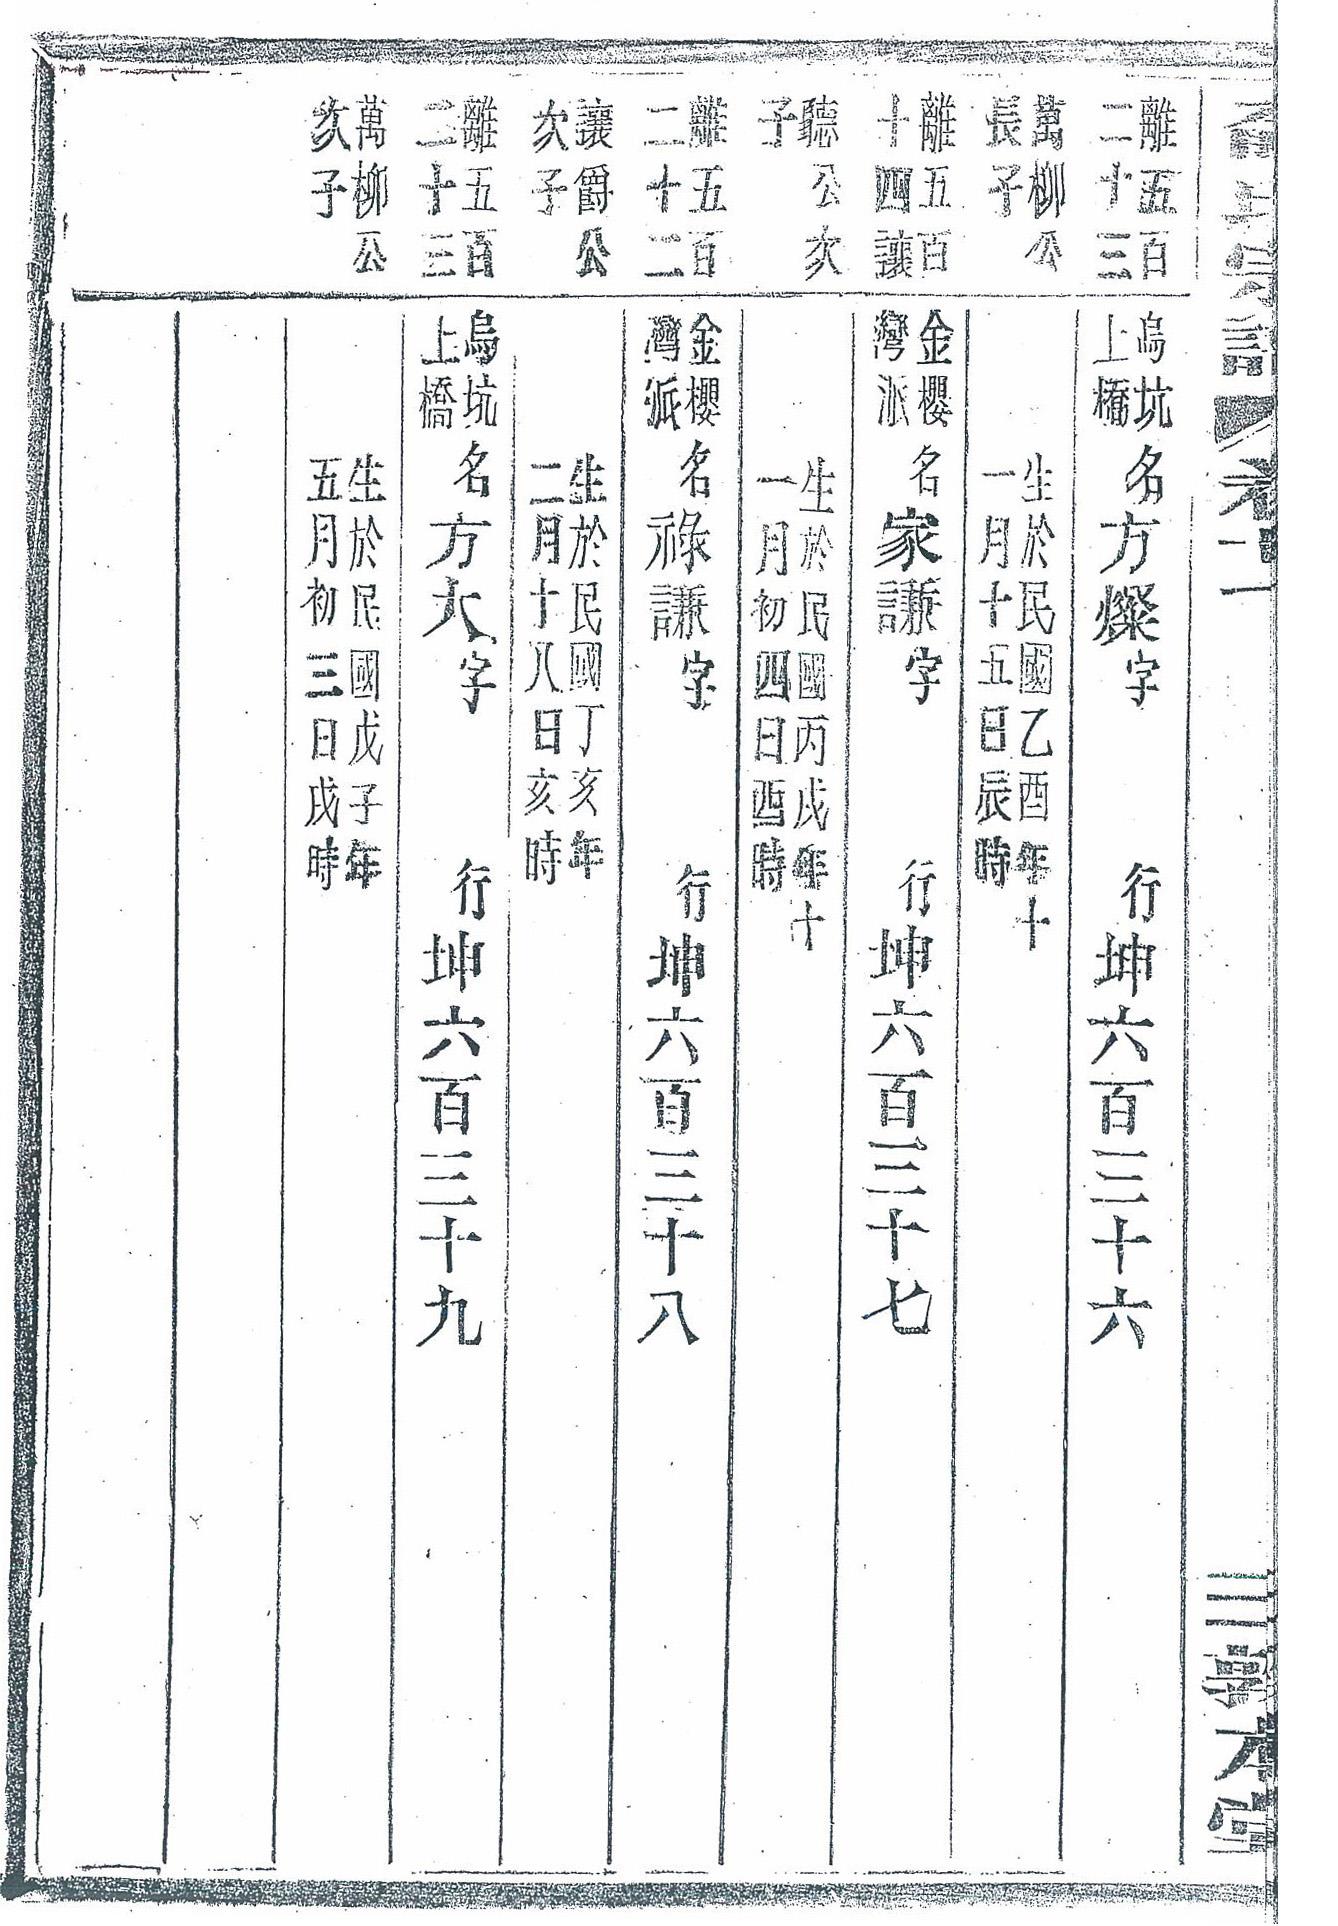 離五百
二十三
萬柳公
長子
烏坑
上橋
名方燦字 行坤六百三十六
生於民國乙酉年十
一月十五日辰時
離五百
十四讓
聽公次
子
金櫻
灣派
名家謙字 行坤六百三十七
生於民國丙戌年十
一月初四日酉時
離五百
二十二
讓爵公
次子
金櫻
灣派
名祿謙字 行坤六百三十八
生於民國丁亥年
二月十八日亥時
離五百
二十三
萬柳公
次子
烏坑
上橋
名方大字 行坤六百三十九
生於民國戊子年
五月初三日戌時